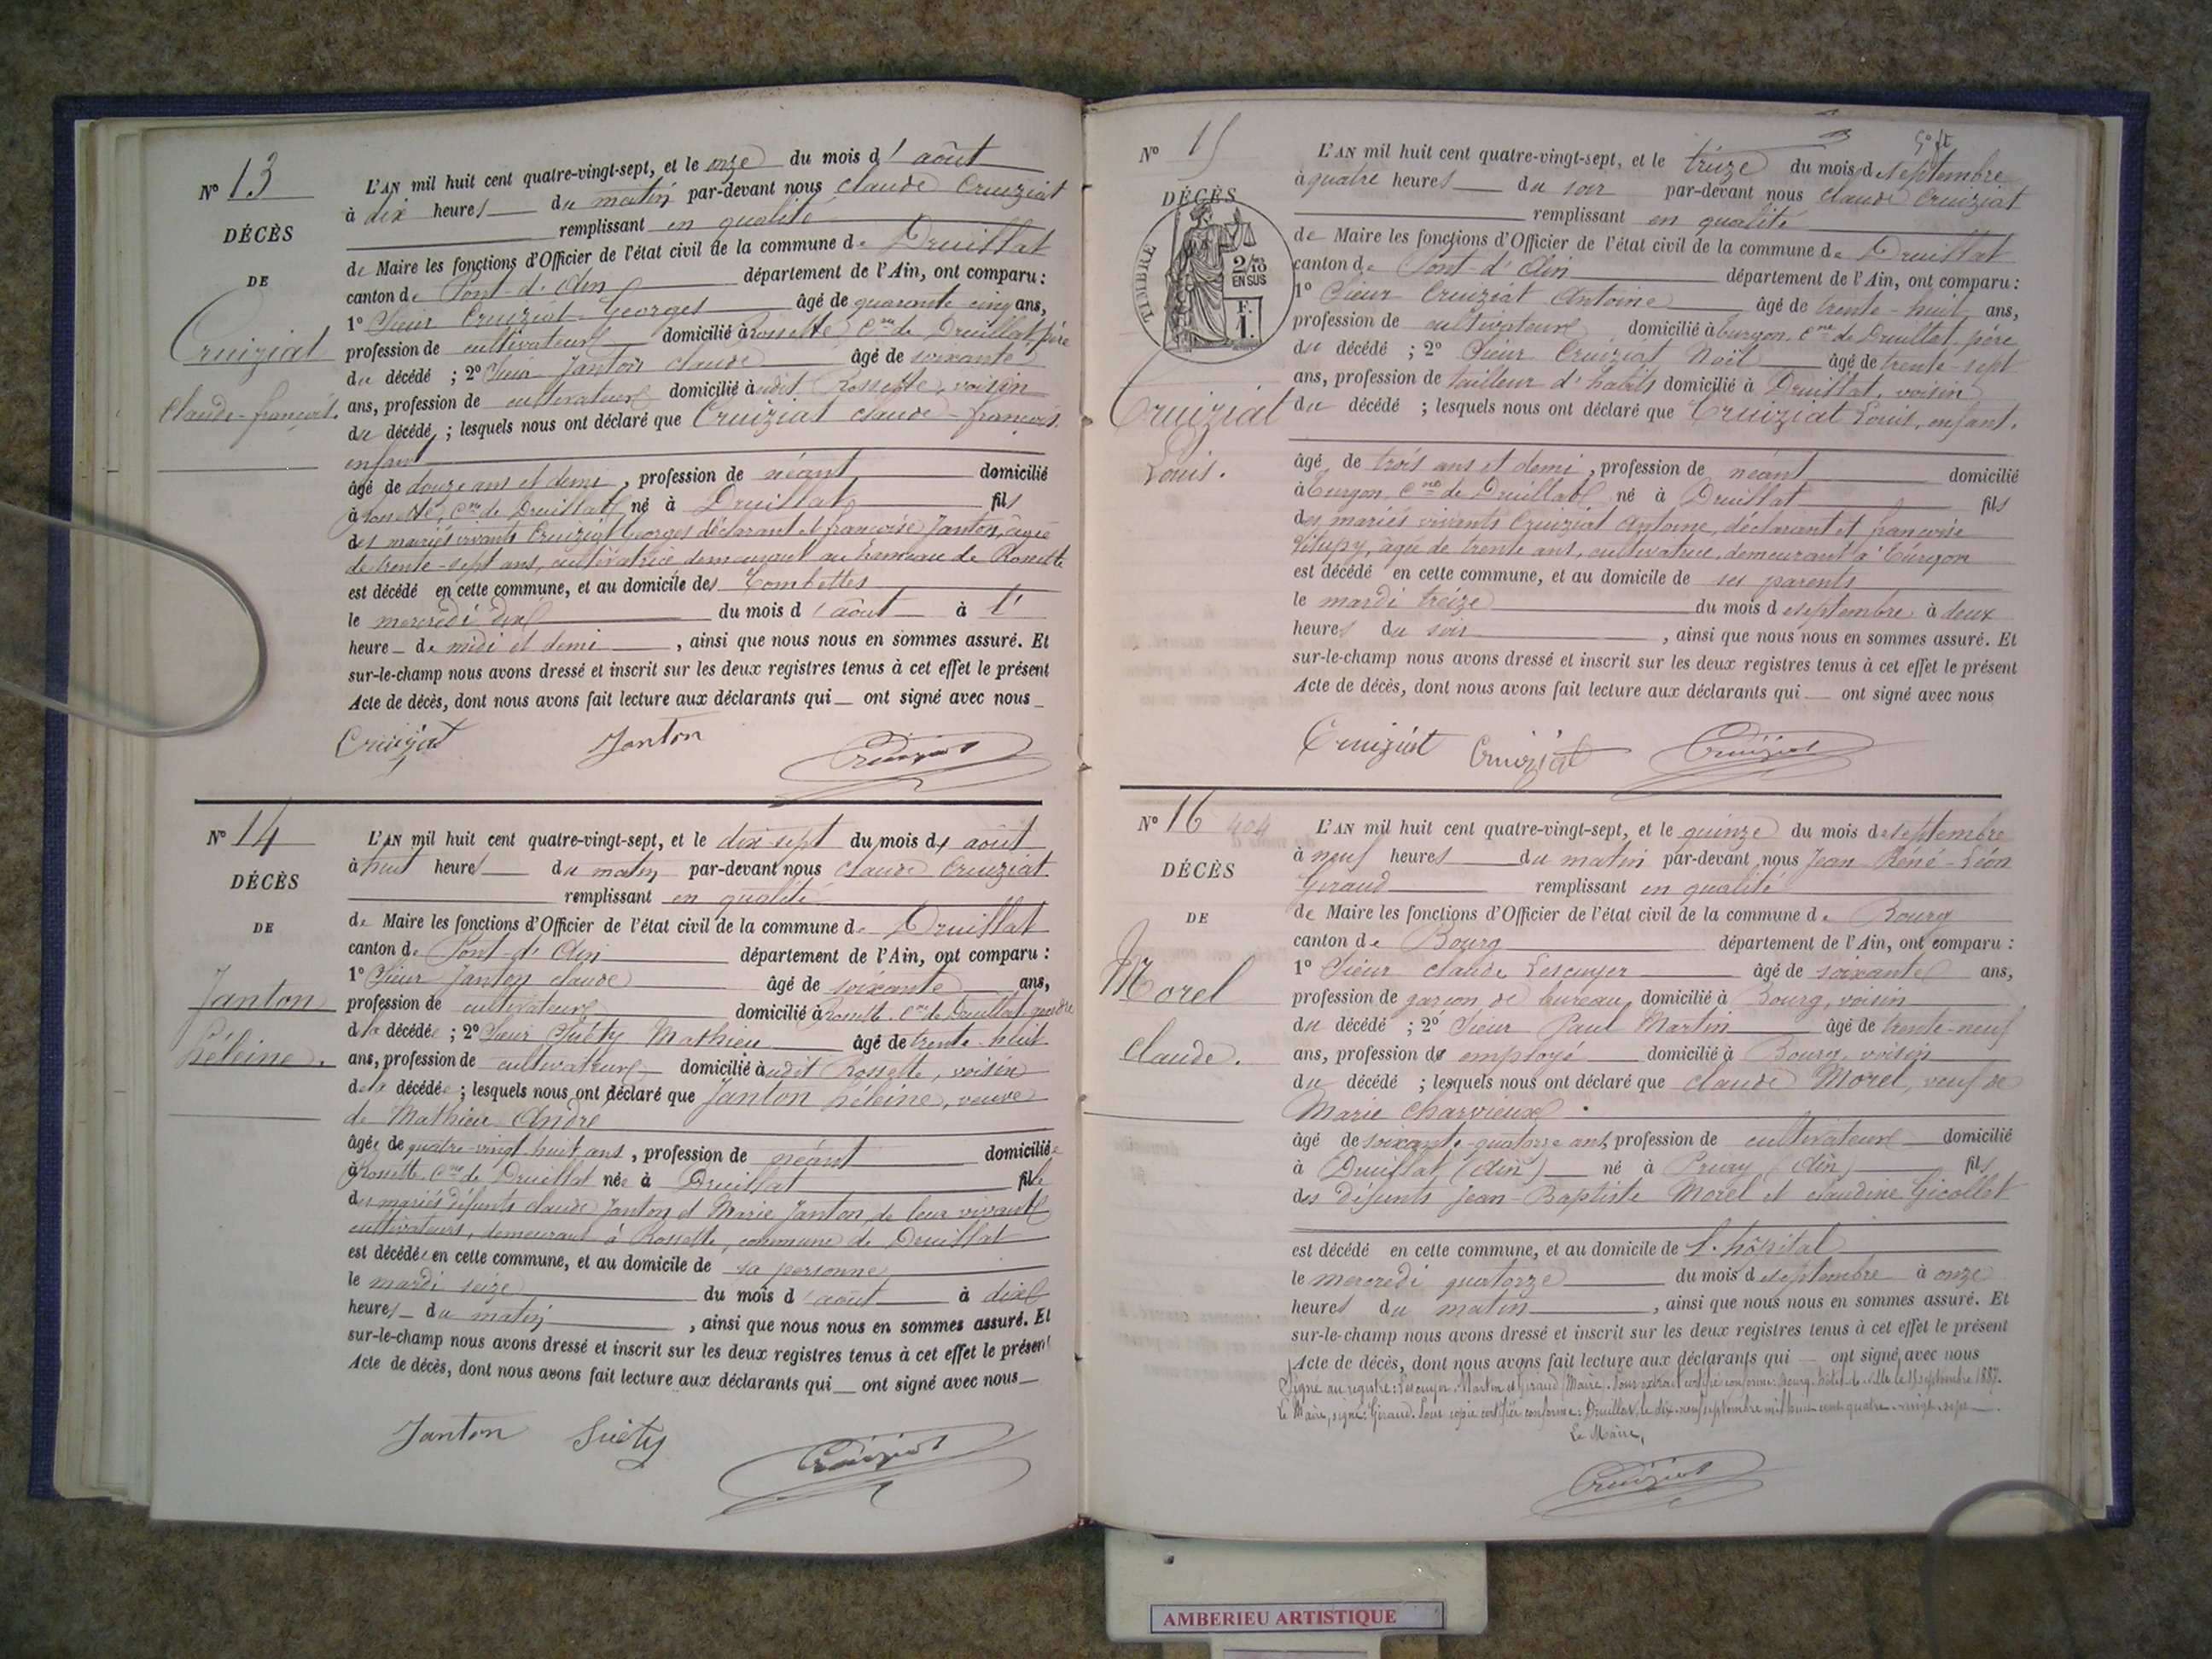 N° 13
DÉCÈS
DE
Cruiziat
Claude-françois.
L'AN mil huit cent quatre-vingt-sept, et le onze du mois d'août
à dix heures du matin par-devant nous Claude Cruiziat
remplissant en qualité
de Maire les fonctions d'Officier de l'état civil de la commune de Druillat
canton de Pont-d'Ain département de l'Ain, ont comparu :
1° Sieur Cruiziat Georges âgé de quarante cinq ans,
profession de cultivateur domicilié à Rossette Cne de Druillat, père
du décédé ; 2° Sieur Janton Claude âgé de soixante
ans, profession de cultivateur domicilié audit Rossette, voisin
du décédé ; lesquels nous ont déclaré que Cruiziat Claude-françois,
enfant
âgé de douze ans et demi, profession de néant domicilié
à Rossette, Cne de Druillat, né à Druillat fils
des mariés vivants Cruiziat Georges déclarant et françoise Janton, âgée
de trente-sept ans, cultivatrice demeurant au hameau de Rossette
est décédé en cette commune, et au domicile des Combettes
le mercredi dix du mois d'août à l'
heure de midi et demi, ainsi que nous nous en sommes assuré. Et
sur-le-champ nous avons dressé et inscrit sur les deux registres tenus à cet effet le présent
Acte de décès, dont nous avons fait lecture aux déclarants qui ont signé avec nous
Cruiziat Janton Cruiziat
N° 14
DÉCÈS
DE
Janton
héleine.
L'AN mil huit cent quatre-vingt-sept, et le dix-sept du mois d'août
à huit heures du matin par-devant nous Claude Cruiziat
remplissant en qualité
de Maire les fonctions d'Officier de l'état civil de la commune de Druillat
canton de Pont-d'Ain département de l'Ain, ont comparu :
1° Sieur Janton Claude âgé de soixante ans,
profession de cultivateur domicilié à Rossette Cne de Druillat, gendre
de la décédée ; 2° Sieur Suéty Mathieu âgé de trente-huit
ans, profession de cultivateur domicilié audit Rossette, voisin
de la décédée ; lesquels nous ont déclaré que Janton héleine, veuve
de Mathieu André
âgée de quatre-vingt-huit ans, profession de néant domiciliée
à Rossette, Cne de Druillat née à Druillat fille
des mariés défunts Claude Janton et Marie Janton, de leur vivant
cultivateurs, demeurant à Rossette, commune de Druillat
est décédée en cette commune, et au domicile de sa personne
le mardi seize du mois d'août à dix
heures du matin, ainsi que nous nous en sommes assuré. Et
sur-le-champ nous avons dressé et inscrit sur les deux registres tenus à cet effet le présent
Acte de décès, dont nous avons fait lecture aux déclarants qui ont signé avec nous
Janton Suéty Cruiziat
N° 15
DÉCÈS
TIMBRE
2/10
EN SUS
F.
1.
Cruiziat
Louis.
L'AN mil huit cent quatre-vingt-sept, et le treize du mois de septembre
à quatre heures du soir par-devant nous Claude Cruiziat
remplissant en qualité
de Maire les fonctions d'Officier de l'état civil de la commune de Druillat
canton de Pont-d'Ain département de l'Ain, ont comparu :
1° Sieur Cruiziat Antoine âgé de trente-huit ans,
profession de cultivateur domicilié à Turgon, Cne de Druillat, père
du décédé ; 2° Sieur Cruiziat Noël âgé de trente-sept
ans, profession de tailleur d'habits domicilié à Druillat, voisin
du décédé ; lesquels nous ont déclaré que Cruiziat Louis, enfant,
âgé de trois ans et demi, profession de néant domicilié
à Turgon, Cne de Druillat né à Druillat fils
des mariés vivants Cruiziat Antoine, déclarant et françoise
âgée de trente ans, cultivatrice, demeurant à Turgon
est décédé en cette commune, et au domicile de ses parents
le mardi treize du mois de septembre à deux
heures du soir, ainsi que nous nous en sommes assuré. Et
sur-le-champ nous avons dressé et inscrit sur les deux registres tenus à cet effet le présent
Acte de décès, dont nous avons fait lecture aux déclarants qui ont signé avec nous
Cruiziat Cruiziat Cruiziat
N° 16 404
DÉCÈS
DE
Morel
Claude.
L'AN mil huit cent quatre-vingt-sept, et le quinze du mois de septembre
à neuf heures du matin par-devant nous Jean René-Léon
Giraud remplissant en qualité
de Maire les fonctions d'Officier de l'état civil de la commune de Bourg
canton de Bourg département de l'Ain, ont comparu :
1° Sieur Claude Lescuyer âgé de soixante ans,
profession de garçon de bureau domicilié à Bourg, voisin
du décédé ; 2° Sieur Paul Martin âgé de trente-neuf
ans, profession d'employé domicilié à Bourg, voisin
du décédé ; lesquels nous ont déclaré que Claude Morel, veuf de
Marie Charvieux.
âgé de soixante-quatorze ans, profession de cultivateur domicilié
à Druillat (Ain) né à Priay (Ain) fils
des défunts Jean-Baptiste Morel et Claudine Gicollet
est décédé en cette commune, et au domicile de l'hôpital
le mercredi quatorze du mois de septembre à onze
heures du matin, ainsi que nous nous en sommes assuré. Et
sur-le-champ nous avons dressé et inscrit sur les deux registres tenus à cet effet le présent
Acte de décès, dont nous avons fait lecture aux déclarants qui ont signé avec nous
Signé au registre : Lescuyer, Martin et Giraud (Maire). Pour extrait certifié conforme : Bourg, hôtel de ville le 15 septembre 1887.
Le Maire, signé : Giraud. Pour copie certifiée conforme : Druillat, le dix-neuf septembre mil huit cent quatre-vingt-sept.
Le Maire,
Cruiziat
AMBERIEU ARTISTIQUE